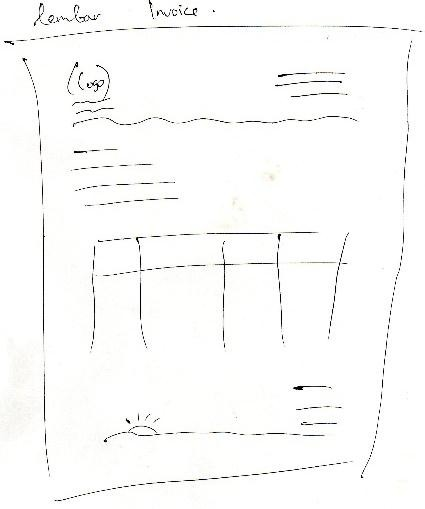 Lembar Invoice.
(Logo)